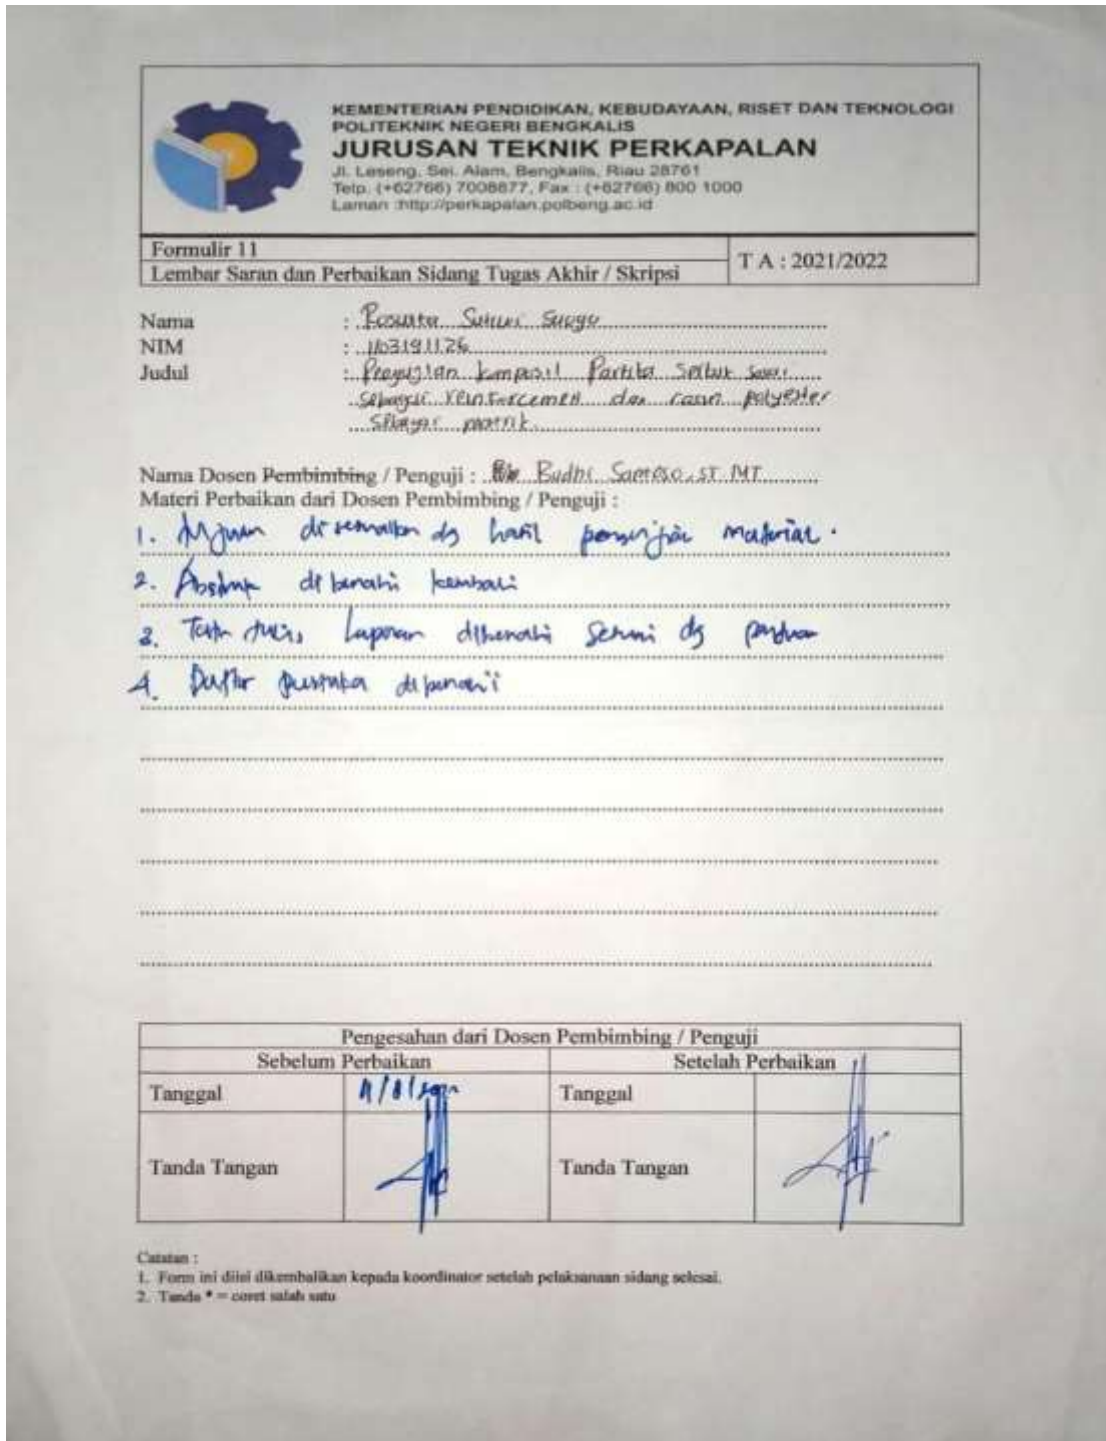 KEMENTERIAN PENDIDIKAN, KEBUDAYAAN, RISET DAN TEKNOLOGI
POLITEKNIK NEGERI BENGKALIS
JURUSAN TEKNIK PERKAPALAN
Jl. Leseng, Sei. Alam, Bengkalis, Riau 28761
Telp. (+62766) 7008877, Fax : (+62766) 800 1000
Laman :http://perkapalan.polbeng.ac.id
Formulir 11
Lembar Saran dan Perbaikan Sidang Tugas Akhir / Skripsi
T A : 2021/2022
Nama :
NIM : 1103191126
Judul : Pengujian komposit Partikel serbuk
sebagai reinforcement dan resin polyester
sebagai matrik
Nama Dosen Pembimbing / Penguji : Budhi Santoso, ST. MT
Materi Perbaikan dari Dosen Pembimbing / Penguji :
1. Tujuan disesuaikan dg hasil pengujian material.
2. Abstrak dibenahi kembali
3. Tata tulis Laporan dibenahi Sesuai dg panduan
4. Daftar pustaka dibenahi
Pengesahan dari Dosen Pembimbing / Penguji
Sebelum Perbaikan Setelah Perbaikan
Tanggal Tanggal
Tanda Tangan Tanda Tangan
Catatan :
1. Form ini diisi dikembalikan kepada koordinator setelah pelaksanaan sidang selesai.
2. Tanda * = coret salah satu